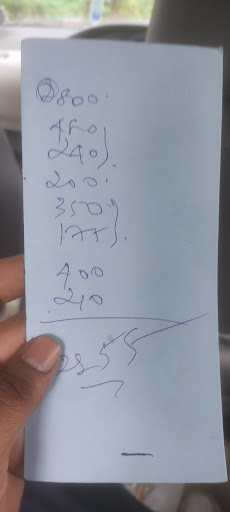 800.
480
240
200.
350
175
400
210
2855